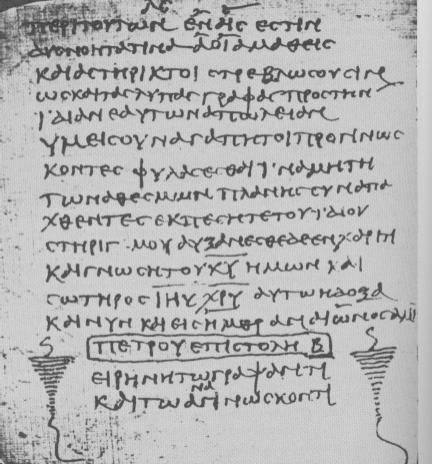 ⲥ
ΠΕΡΙΤΟΥΤΩΝ ΕΝΑΙϹ ΕϹΤΙΝ
ΚΑΙΑϹΤΗΡΙΚΤΟΙ ϹΤΡΕΒΛΩϹΟΥϹΙΝ
ΩϹΚΑΙΤΑϹΛΥΠΑϹΓΡΑΦΑϹΠΡΟϹΤΗΝ
ΪΔΙΑΝΕΑΥΤΩΝΑΠΩΛΕΙΑΝ
ΥΜΕΙϹΟΥΝΑΓΑΠΗΤΟΙΠΡΟΓΙΝΩϹ
ΚΟΝΤΕϹ ΦΥΛΑϹΕϹΘΑΙ ΪΝΑΜΗΤΗ
ΤΩΝΑΘΕϹΜΩΝ ΠΛΑΝΗϹΥΝΑΠΑ
ΧΘΕΝΤΕϹΕΚΠΕϹΗΤΕΤΟΥΪΔΙΟΥ
ϹΤΗΡΙΓΜΟΥΑΥΞΑΝΕϹΘΕΔΕΕΝΧΑΡΙΤΙ
ΚΑΙΓΝΩϹΗΤΟΥΚΥ ΗΜΩΝ ΚΑΙ
ϹΩΤΗΡΟϹ ΙΗΥ ΧΡΥ ΑΥΤΩΗΔΟΞΑ
ΚΑΙΝΥΝ ΚΑΙΕΙϹΗΜΕΡΑΝΑΙΩΝΟϹ
ΠΕΤΡΟΥΕΠΙϹΤΟΛΗ Β
ΕΙΡΗΝΗΤΩΓΡΑΨΑΝΤΙ
ΚΑΙΤΩΑΝΑΓΙΝΩϹΚΟΝΤΙ